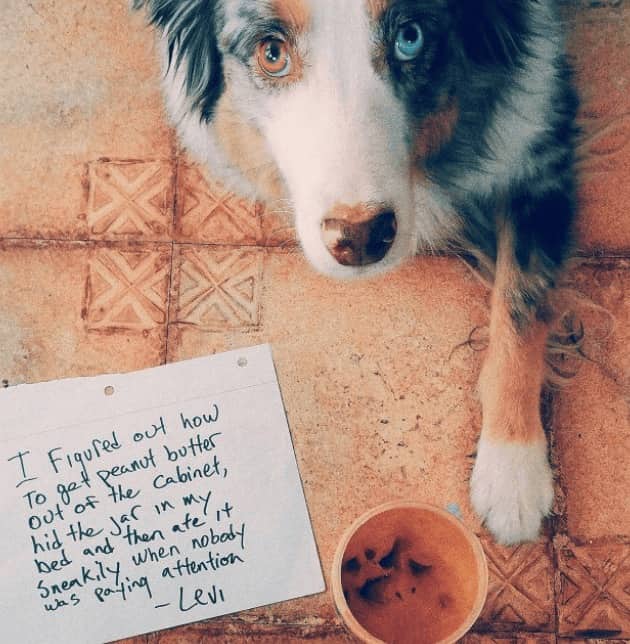 I Figured out how
To get peanut butter
out of the cabinet,
hid the jar in my
bed and then ate it
sneakily when nobody
was paying attention
- Levi